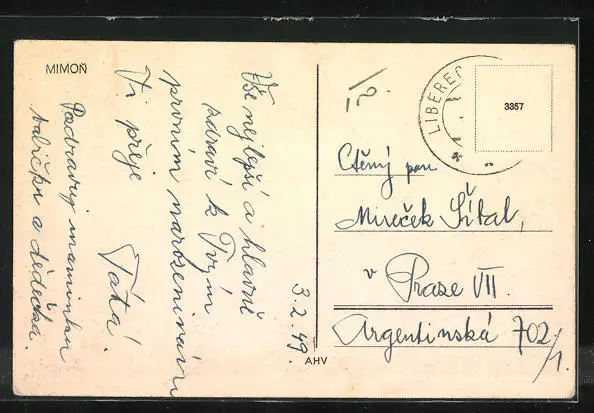 MIMOŇ
Vše nejlepší a hlavně
zdraví k Tvým
prvním narozeninám
Ti přeje
Táta!
Pozdravuj maminku
babičku a dědečka.
3.2.49.
AHV
LIBEREC
3357
Ctěný pan
Mireček Šítal,
v Praze VII.
Argentinská 702/1.